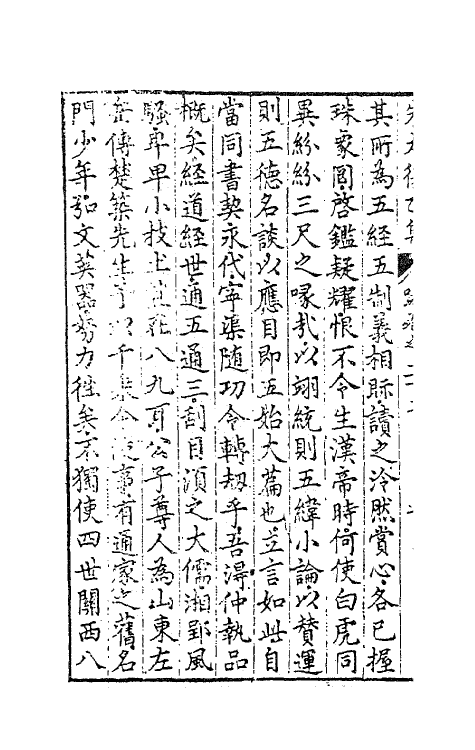 其所為五經五制義相眎讀之泠然賞心各已握
珠家閣啓鑑疑耀恨不令生漢帝時何使白虎同
異紛紛三尺之喙哉以翊統則五緯小論以贊運
則五德名談以應目即五始大篇也立言如此自
當同書契永代寧渠隨功令轉刼乎吾得仲執品
概矣經道經世通五通三刮目湏之大儒湘郢風
騷卑卑小技士苴菲八九耳公子尊人為山東左
丞傳楚築先生予以千乘令從事有通家之舊名
門少年弘文英器努力徃矣不獨使四世關西八